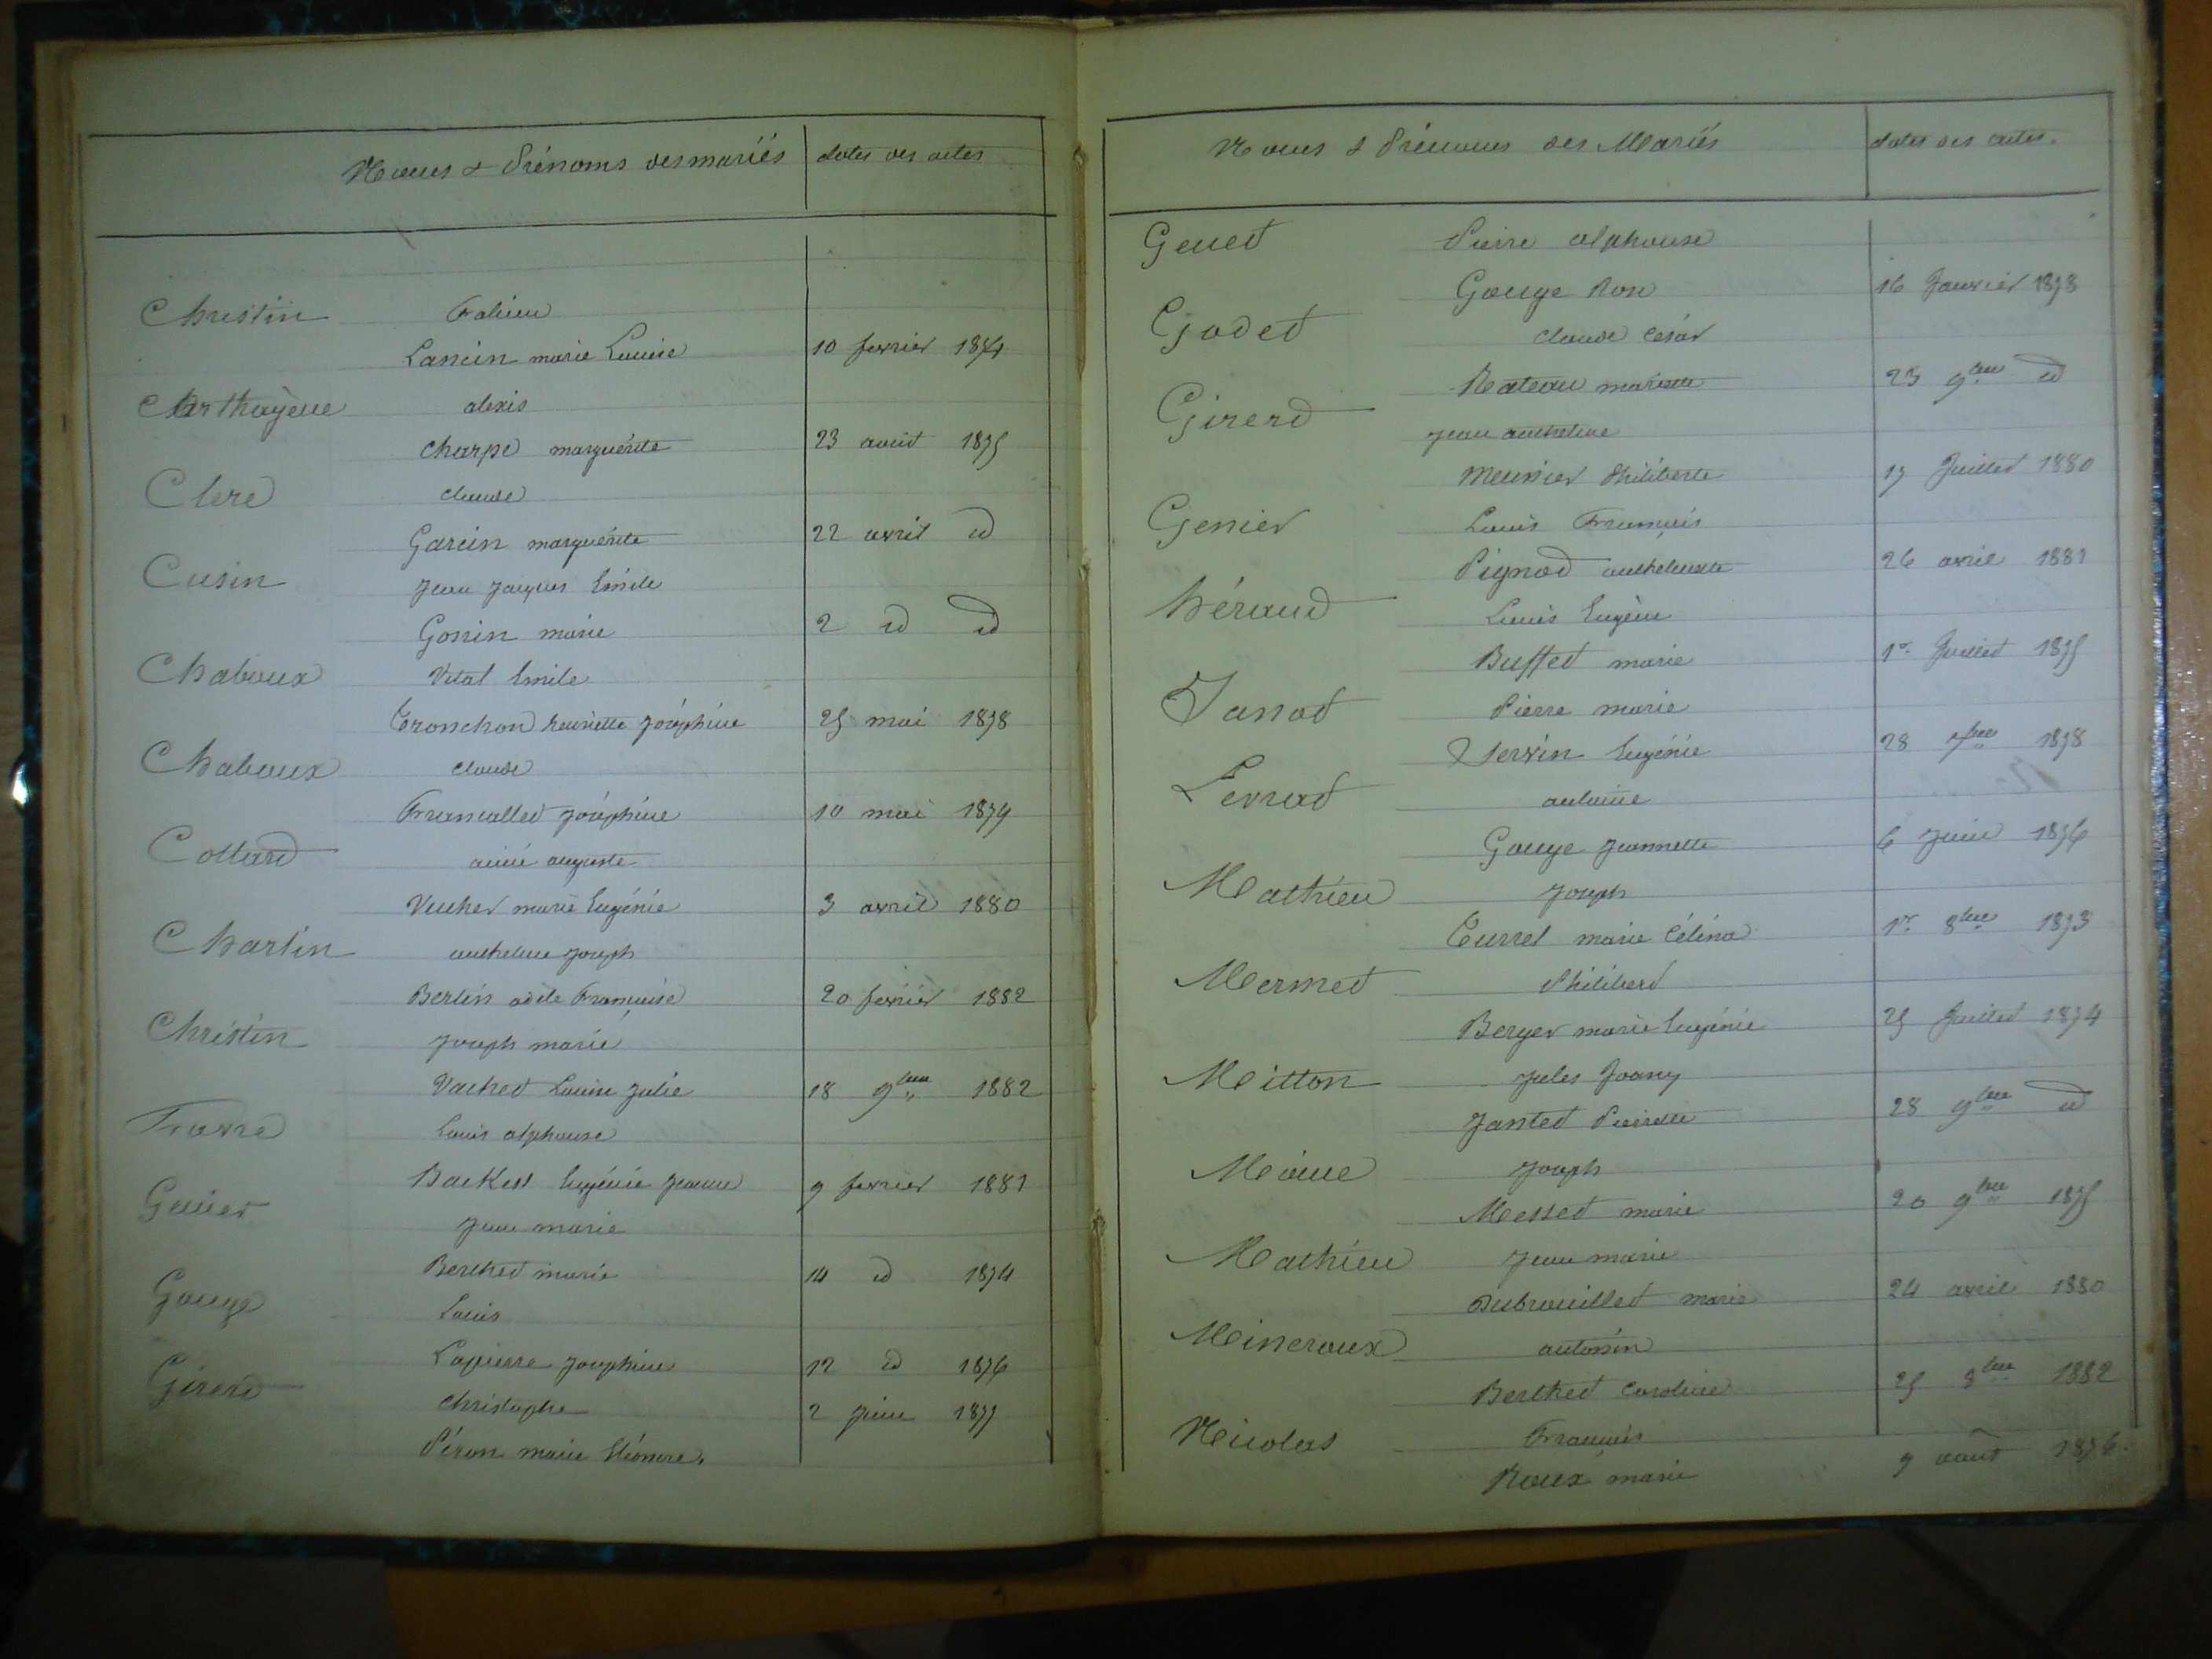 Noms & Prénoms des mariés dates des actes
Christin Fabien
Lancin marie Louise 10 fevrier 1874
Charthagène alexis
Charpe marguérite 23 aout 1875
Clere claude
Garcin marguérite 22 avril id
Cusin Jean Jacques Emile
Gonin marie 2 id id
Chaboux Vital Emile
Tronchon henriette Joséphine 25 mai 1878
Chaboux claude
Francallet Joséphine 10 mai 1879
Cottard aimé auguste
Vucher marie Eugénie 3 avril 1880
Chartin anthelme Joseph
Berlin adèle Françoise 20 fevrier 1882
Christin Joseph marie
Vachet Louise Julie 18 9bre 1882
Favre Louis alphonse
Backess Eugénie Jeanne 9 fevrier 1881
Genier Jean marie
Berthet marie 14 id 1874
Gouge Louis
Lapierre Joséphine 12 id 1876
Girerd Christophe 2 Juin 1877
Péron marie Eléonore.
Noms & Prénoms des Mariés dates des actes.
Genet Pierre alphonse
Gouge Rose 16 Janvier 1878
Godet claude César
Rateau mariette 23 9bre id
Girerd Jean anthelme
Meunier Philiberte 17 Juillet 1880
Genier Louis François
Pignod anthelmette 26 avril 1881
héraud Louis Eugène
Buffet marie 1er Juillet 1875
Janod Pierre marie
Servin Eugénie 28 7bre 1878
Levrat antoine
Gouge Jeannette 6 Juin 1876
Mathieu Joseph
Curret marie Célina 1er 8bre 1873
Mermet Philibert
Berger marie Eugénie 25 Juillet 1874
Mitton Jules Joany
Jantet Pierrette 28 9bre id
Moine Joseph
Messet marie 20 9bre 1875
Mathieu Jean marie
Dubrouillet marie 24 avril 1880
Mineroux antonin
Berthet Caroline 25 8bre 1882
Nicolas François
Roux marie 9 aout 1876.